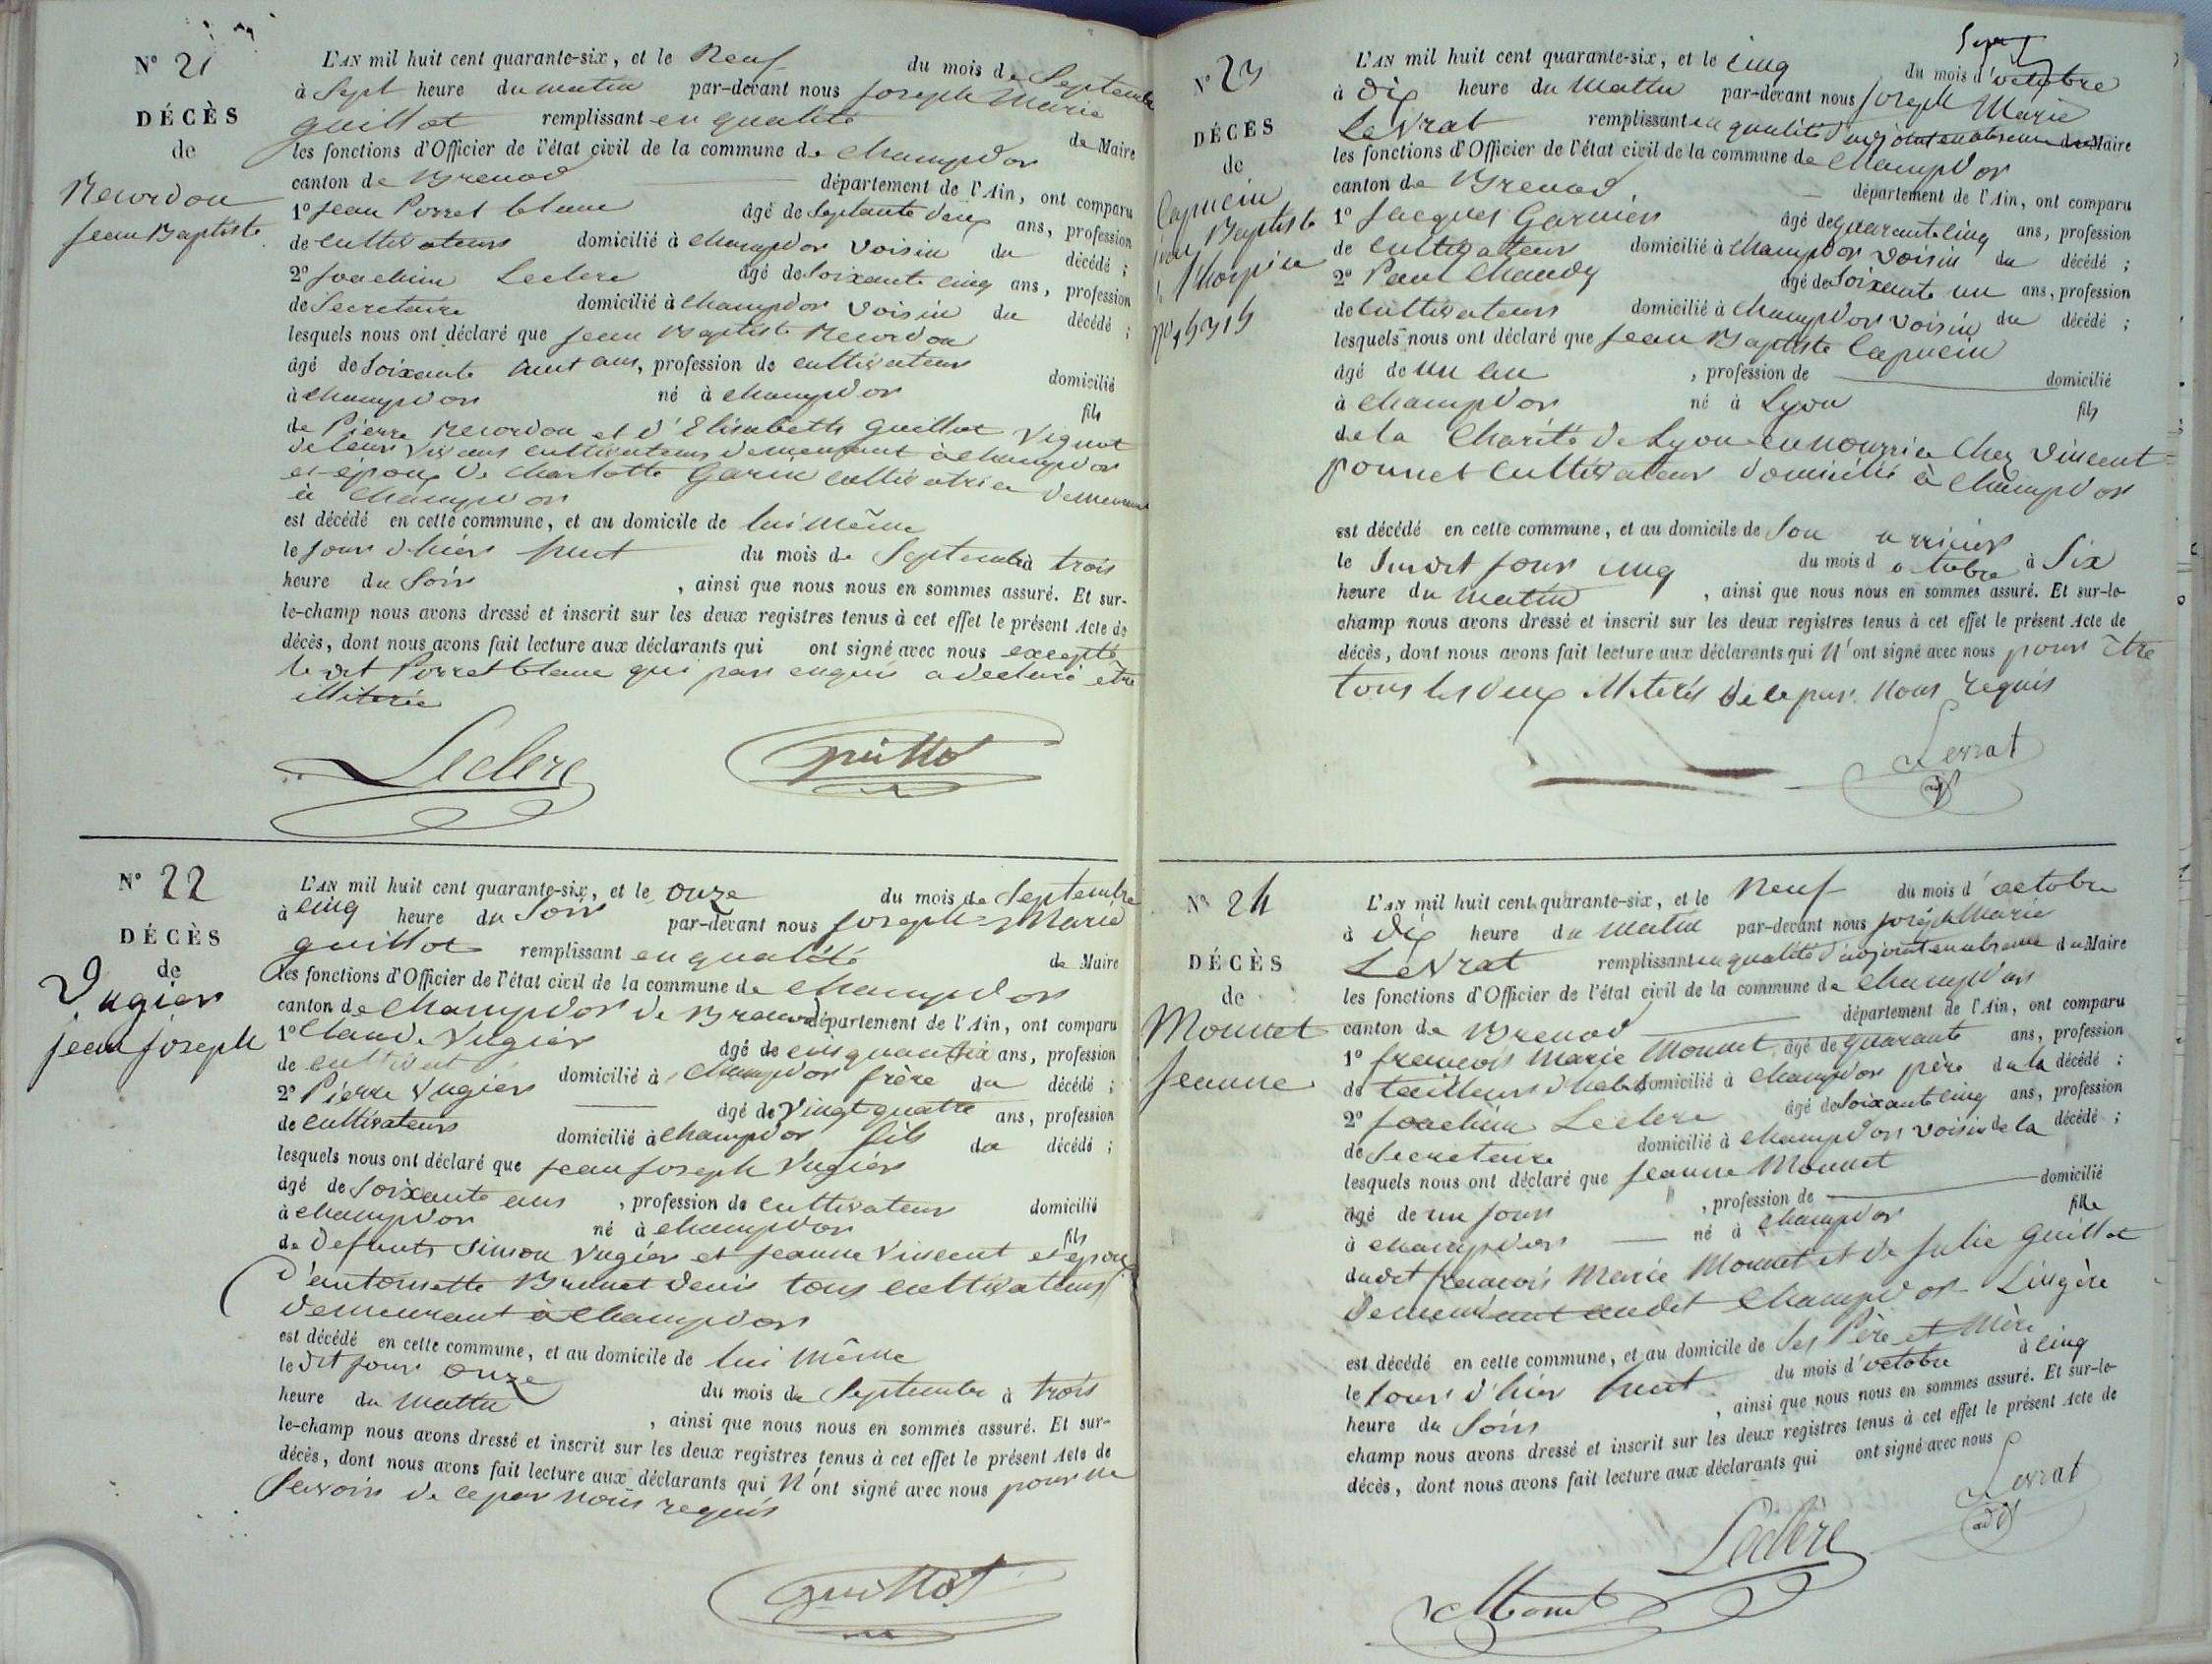 N° 21
DÉCÈS
de
Recordon
Jean Baptiste
L'AN mil huit cent quarante-six, et le Neuf du mois de Septembre
à Sept heure du matin par-devant nous Joseph Marie
Guillot remplissant en qualité de Maire
les fonctions d'Officier de l'état civil de la commune de Champdor
canton de Brenod département de l'Ain, ont comparu
1° Jean Porret blanc âgé de Septante deux ans, profession
de Cultivateur domicilié à Champdor voisin du décédé ;
2° Joachim Leclerc âgé de Soixante cinq ans, profession
de Secretaire domicilié à Champdor voisin du décédé ;
lesquels nous ont déclaré que Jean Baptiste Recordon
âgé de Soixante huit ans, profession de cultivateur domicilié
à Champdor né à Champdor fils
de Pierre Recordon et d'Elisabeth Guillot Vignot
de leur vivans cultivateurs demeurant à Champdor
et époux de Charlotte Garin cultivatrice demeurant
à Champdor
est décédé en cette commune, et au domicile de lui même
le Jour d'hier huit du mois de Septembre à trois
heure du Soir , ainsi que nous nous en sommes assuré. Et sur-
le-champ nous avons dressé et inscrit sur les deux registres tenus à cet effet le présent Acte de
décès, dont nous avons fait lecture aux déclarants qui ont signé avec nous excepté
le dit Porret blanc qui par enquis a declaré être
illiteré
Leclerc Guillot
N° 22
DÉCÈS
de
Vugier
Jean Joseph
L'AN mil huit cent quarante-six, et le onze du mois de Septembre
à cinq heure du Soir par-devant nous Joseph Marie
Guillot remplissant en qualité de Maire
les fonctions d'Officier de l'état civil de la commune de Champdor
canton de Champdor de Brenod département de l'Ain, ont comparu
1° Claude Vugier âgé de cinquante six ans, profession
de cultivat domicilié à Champdor frère du décédé ;
2° Pierre Vugier âgé de vingt quatre ans, profession
de Cultivateur domicilié à Champdor fils du décédé ;
lesquels nous ont déclaré que Jean Joseph Vugier
âgé de Soixante ans , profession de cultivateur domicilié
à Champdor né à Champdor fils
de Defunts Simon Vugier et Jeanne Vincent et époux
d'antoinette Brunet Denis tous cultivateurs
demeurant à Champdor
est décédé en cette commune, et au domicile de lui même
le dit jour onze du mois de Septembre à trois
heure du Matin , ainsi que nous nous en sommes assuré. Et sur-
le-champ nous avons dressé et inscrit sur les deux registres tenus à cet effet le présent Acte de
décès, dont nous avons fait lecture aux déclarants qui N'ont signé avec nous pour ne
Savoir de ce par nous requis
Guillot
N° 23
DÉCÈS
de
Capucin
Jean Baptiste
L'AN mil huit cent quarante-six, et le cinq du mois d'octobre
à Dix heure du Matin par-devant nous Joseph Marie
Levrat remplissant en qualité d'adjoint en absence du Maire
les fonctions d'Officier de l'état civil de la commune de Champdor
canton de Brenod département de l'Ain, ont comparu
1° Jacques Garnier âgé de quarante cinq ans, profession
de cultivateur domicilié à Champdor voisin du décédé ;
2° Paul Chaudy âgé de Soixante un ans, profession
de Cultivateur domicilié à Champdor voisin du décédé ;
lesquels nous ont déclaré que Jean Baptiste Capucin
âgé de un an , profession de domicilié
à Champdor né à Lyon fils
de la Charité de Lyon en nourrice Chez Vincent
ponnet Cultivateur domicilié à Champdor
est décédé en cette commune, et au domicile de Son
le Susdit jour cinq du mois d octobre à Six
heure du matin , ainsi que nous nous en sommes assuré. Et sur-le-
champ nous avons dressé et inscrit sur les deux registres tenus à cet effet le présent Acte de
décès, dont nous avons fait lecture aux déclarants qui N'ont signé avec nous pour être
tous les deux illiterés de ce par nous requis
Levrat
N° 24
DÉCÈS
de
Monnet
Jeanne
L'AN mil huit cent quarante-six, et le Neuf du mois d'octobre
à Dix heure du matin par-devant nous Joseph Marie
Levrat remplissant en qualité d'adjoint en absence du Maire
les fonctions d'Officier de l'état civil de la commune de Champdor
canton de Brenod département de l'Ain, ont comparu
1° françois Marie Monnet âgé de quarante ans, profession
de tailleur d'habits domicilié à Champdor père de la décédé ;
2° Joachim Leclerc âgé de Soixante cinq ans, profession
de Secretaire domicilié à Champdor voisin de la décédé ;
lesquels nous ont déclaré que Jeanne Monnet
âgé de un jour , profession de domicilié
à Champdor né à Champdor fille
dudit françois Marie Monnet et de Julie Guillot
Demeurant audit Champdor Lingère
est décédé en cette commune, et au domicile de Ses Père et Mère
le Jour d'hier huit du mois d'octobre à cinq
heure du Soir , ainsi que nous nous en sommes assuré. Et sur-le-
champ nous avons dressé et inscrit sur les deux registres tenus à cet effet le présent Acte de
décès, dont nous avons fait lecture aux déclarants qui ont signé avec nous
Levrat
Leclerc
Monnet